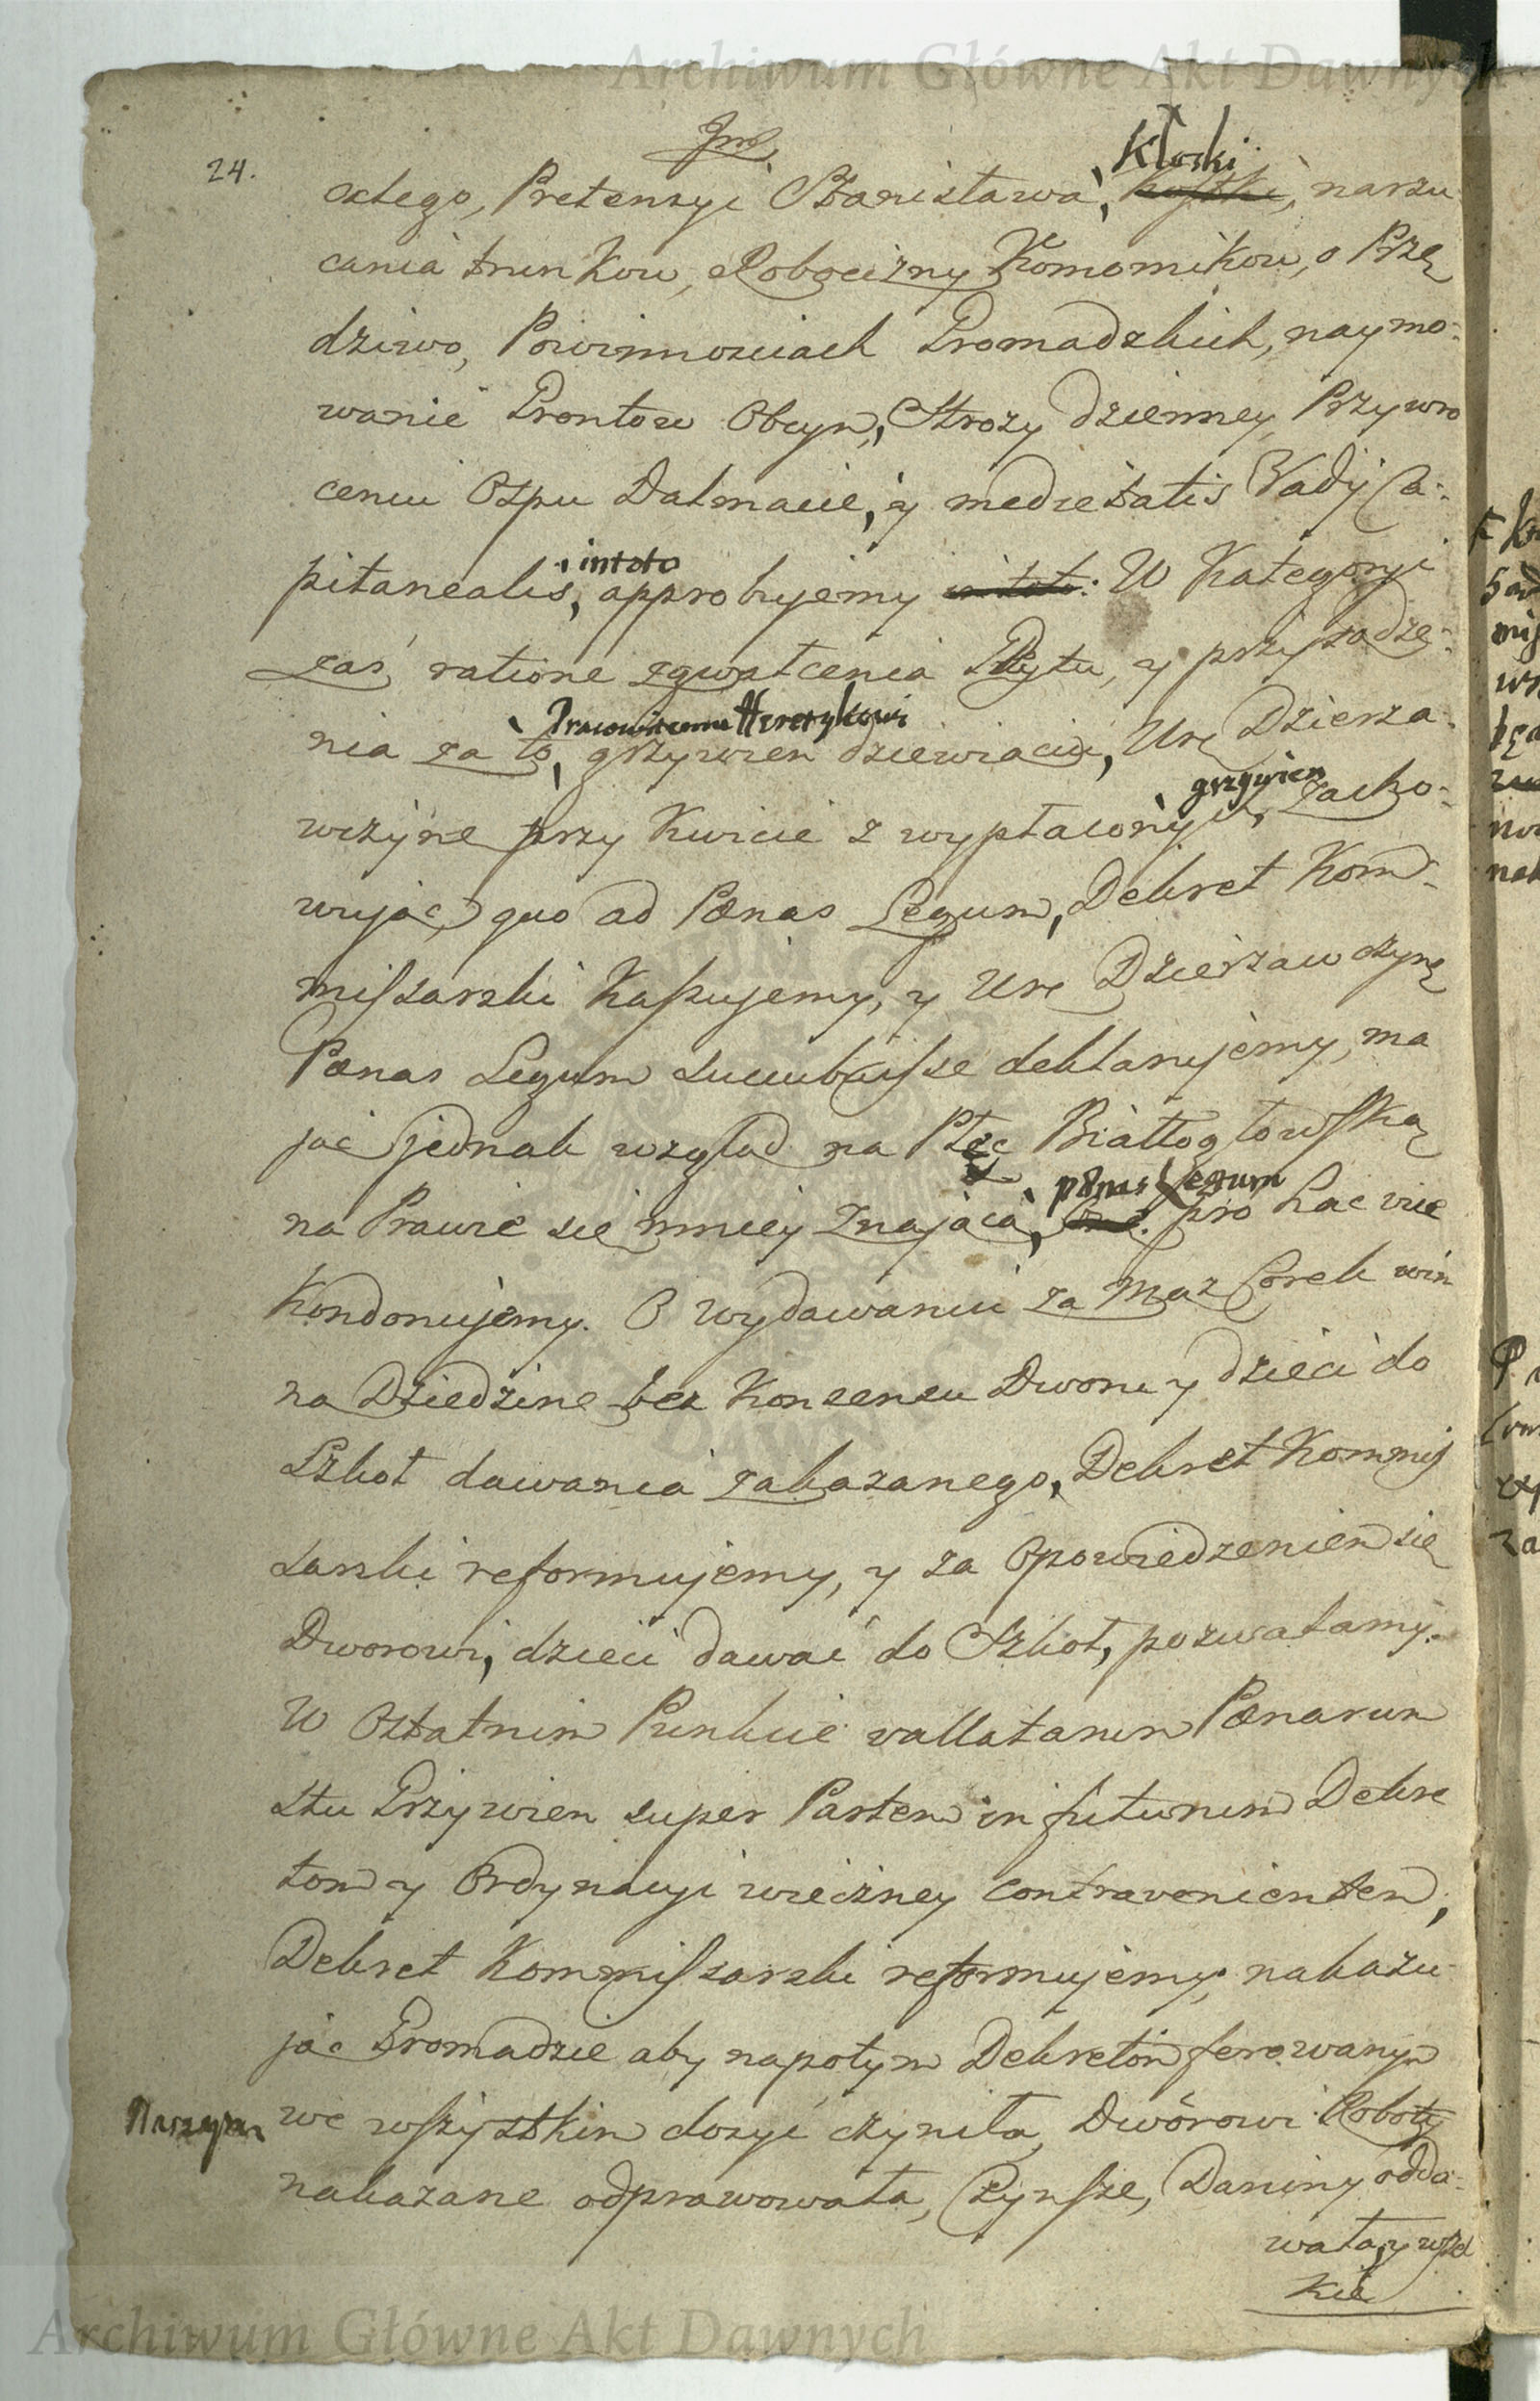 Archiwum Główne Akt Dawnych
24.
Kłoski
cztego, Pretensyi Stanisława, narzu
cania trunkow, Robocizny Komornikow, o Przę
dziwo, Powinnosciach Gromadzkich, naymo-
wanie Gruntow Obcym, Strozy dzienney Przywro
ceniu Ospu Dalmacie, y medietatis Vadij Ca-
intoto
pitanealis, approbujemy in toto: W Kategoryi
zas, ratione zgwałcenia Rytu, y przysądze-
Pracowitemu Heretykowi
nia za to, grzywien dziewiaciu, Urę Dzierża-
grzywien
wczynę przy Kwicie z wypłaconych, zacho-
wując, quo ad Pœnas Legum, Dekret Kom-
missarski Kassujemy, y Urę Dzierzawczynę
Pœnas Legum succubuisse deklarujemy, ma
jąc jednak wzgląd na Płeć Białłogłowską
pœnas Legum
na Prawie się mniey znającą, pro hac vice
Kondonujemy. O wydawaniu za Mąż Corek win
na Dziedzinę bez Konsensu Dworu y dzieci do
Szkoł dawania zakazanego, Dekret Kommis
sarski reformujemy, y za Opowiedzeniem się
Dworowi, dzieci dawać do Szkoł, pozwalamy.
W Ostatnim Punkcie vallatarum Pœnarum
stu Grzywien super Partem in futurum Dekre
tom y Ordynacyi wieczney contravenientem,
Dekret Kommissarski reformujemy, nakazu
jąc Gromadzie aby napotym Dekretom ferowanym
Naszym we wszystkim dosyć czyniła, Dworowi Roboty
nakazane odprawowała, Czynsze, Daniny odda-
wała, y wszel
kie
Archiwum Główne Akt Dawnych